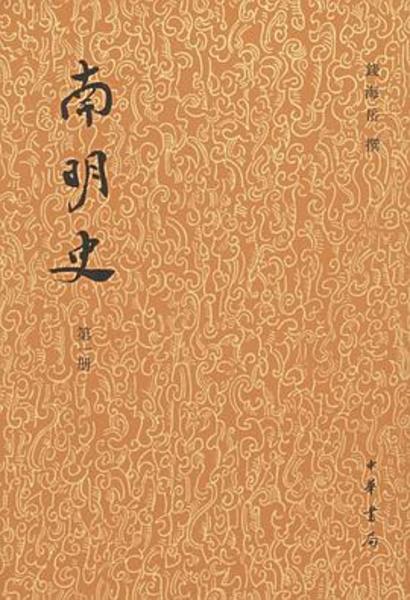 錢海岳 撰
南明史
第一册
中華書局